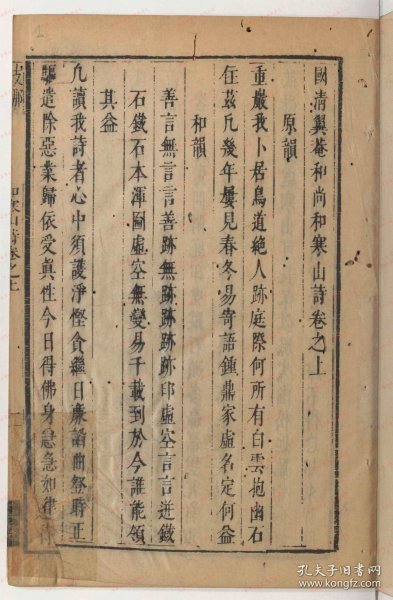 國清翼菴和尚和寒山詩卷之上
原韻
重巖我卜居鳥道絶人跡庭際何所有白雲抱幽石
住茲凡幾年屢見春冬易寄語鍾鼎家虛名定何益
和韻
善言無言言善跡無跡跡跡印虛空言言迸鐵
石鐵石本渾圇虛空無變易千載到於今誰能領
其益
凡讀我詩者心中須護淨慳貪繼日廉謟曲登時正
驅遣除惡業歸依受真性今日得佛身急急如律令
和寒山詩卷之上
孔夫子旧书网
www.kongfz.com